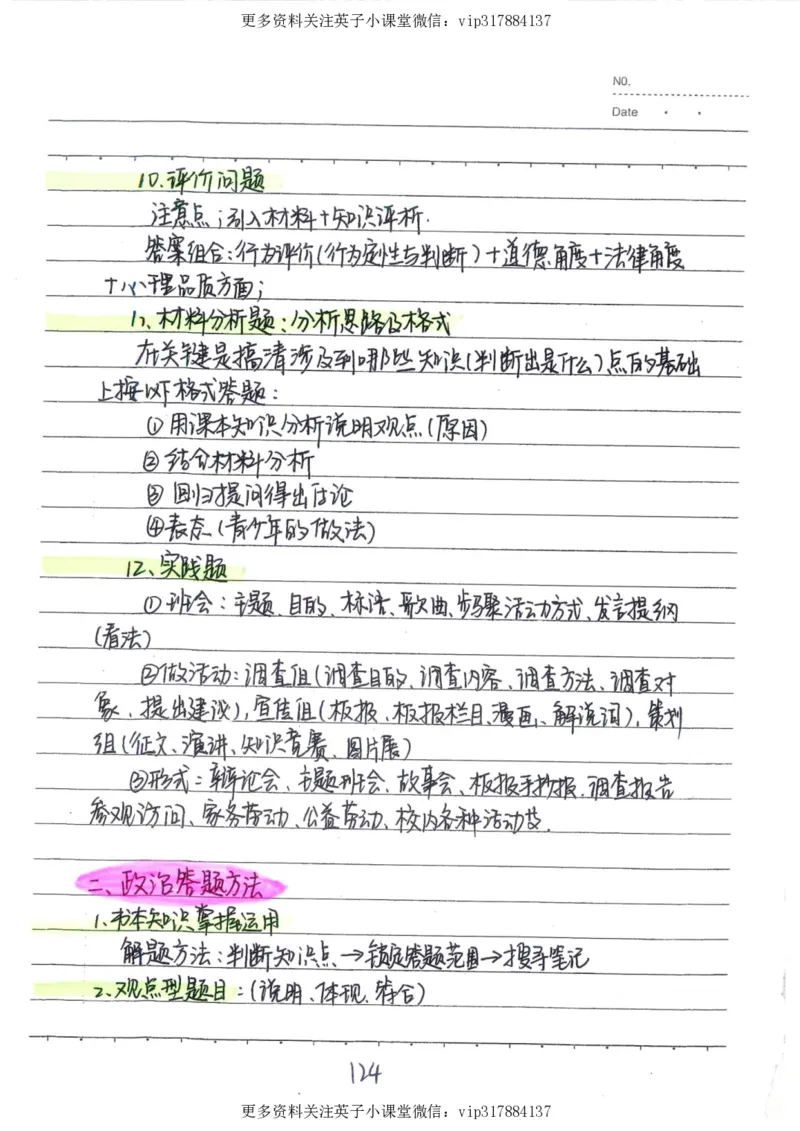 更多资料关注英子小课堂微信：vip317884137
NO.
Date
10.评价问题
注意点：引入材料+知识评析.
答案组合：行为评价(行为定性与判断)+道德角度+法律角度
+心理品质方面；
11、材料分析题：分析思路及格式
在关键是搞清涉及到哪些知识(判断出是什么)点的基础
上按以下格式答题：
①用课本知识分析说明观点(原因)
②结合材料分析
③回归提问得出结论
④表态(青少年的做法)
12、实践题
①班会：主题、目的、标语、歌曲、步骤活动方式、发言提纲
(看法)
②做活动：调查组(调查目的、调查内容、调查方法、调查对
象、提出建议),宣传组(板报、板报栏目、漫画、解说词),策划
组(征文、演讲、知识竞赛、图片展)
③形式：辩论会、主题班会、故事会、板报手抄报、调查报告
参观访问、家务劳动、公益劳动、校内各种活动等.
二、政治答题方法
1、书本知识掌握运用
解题方法：判断知识点→锁定答题范围→搜寻笔记
2、观点型题目：(说明、体现、符合)
124
更多资料关注英子小课堂微信：vip317884137